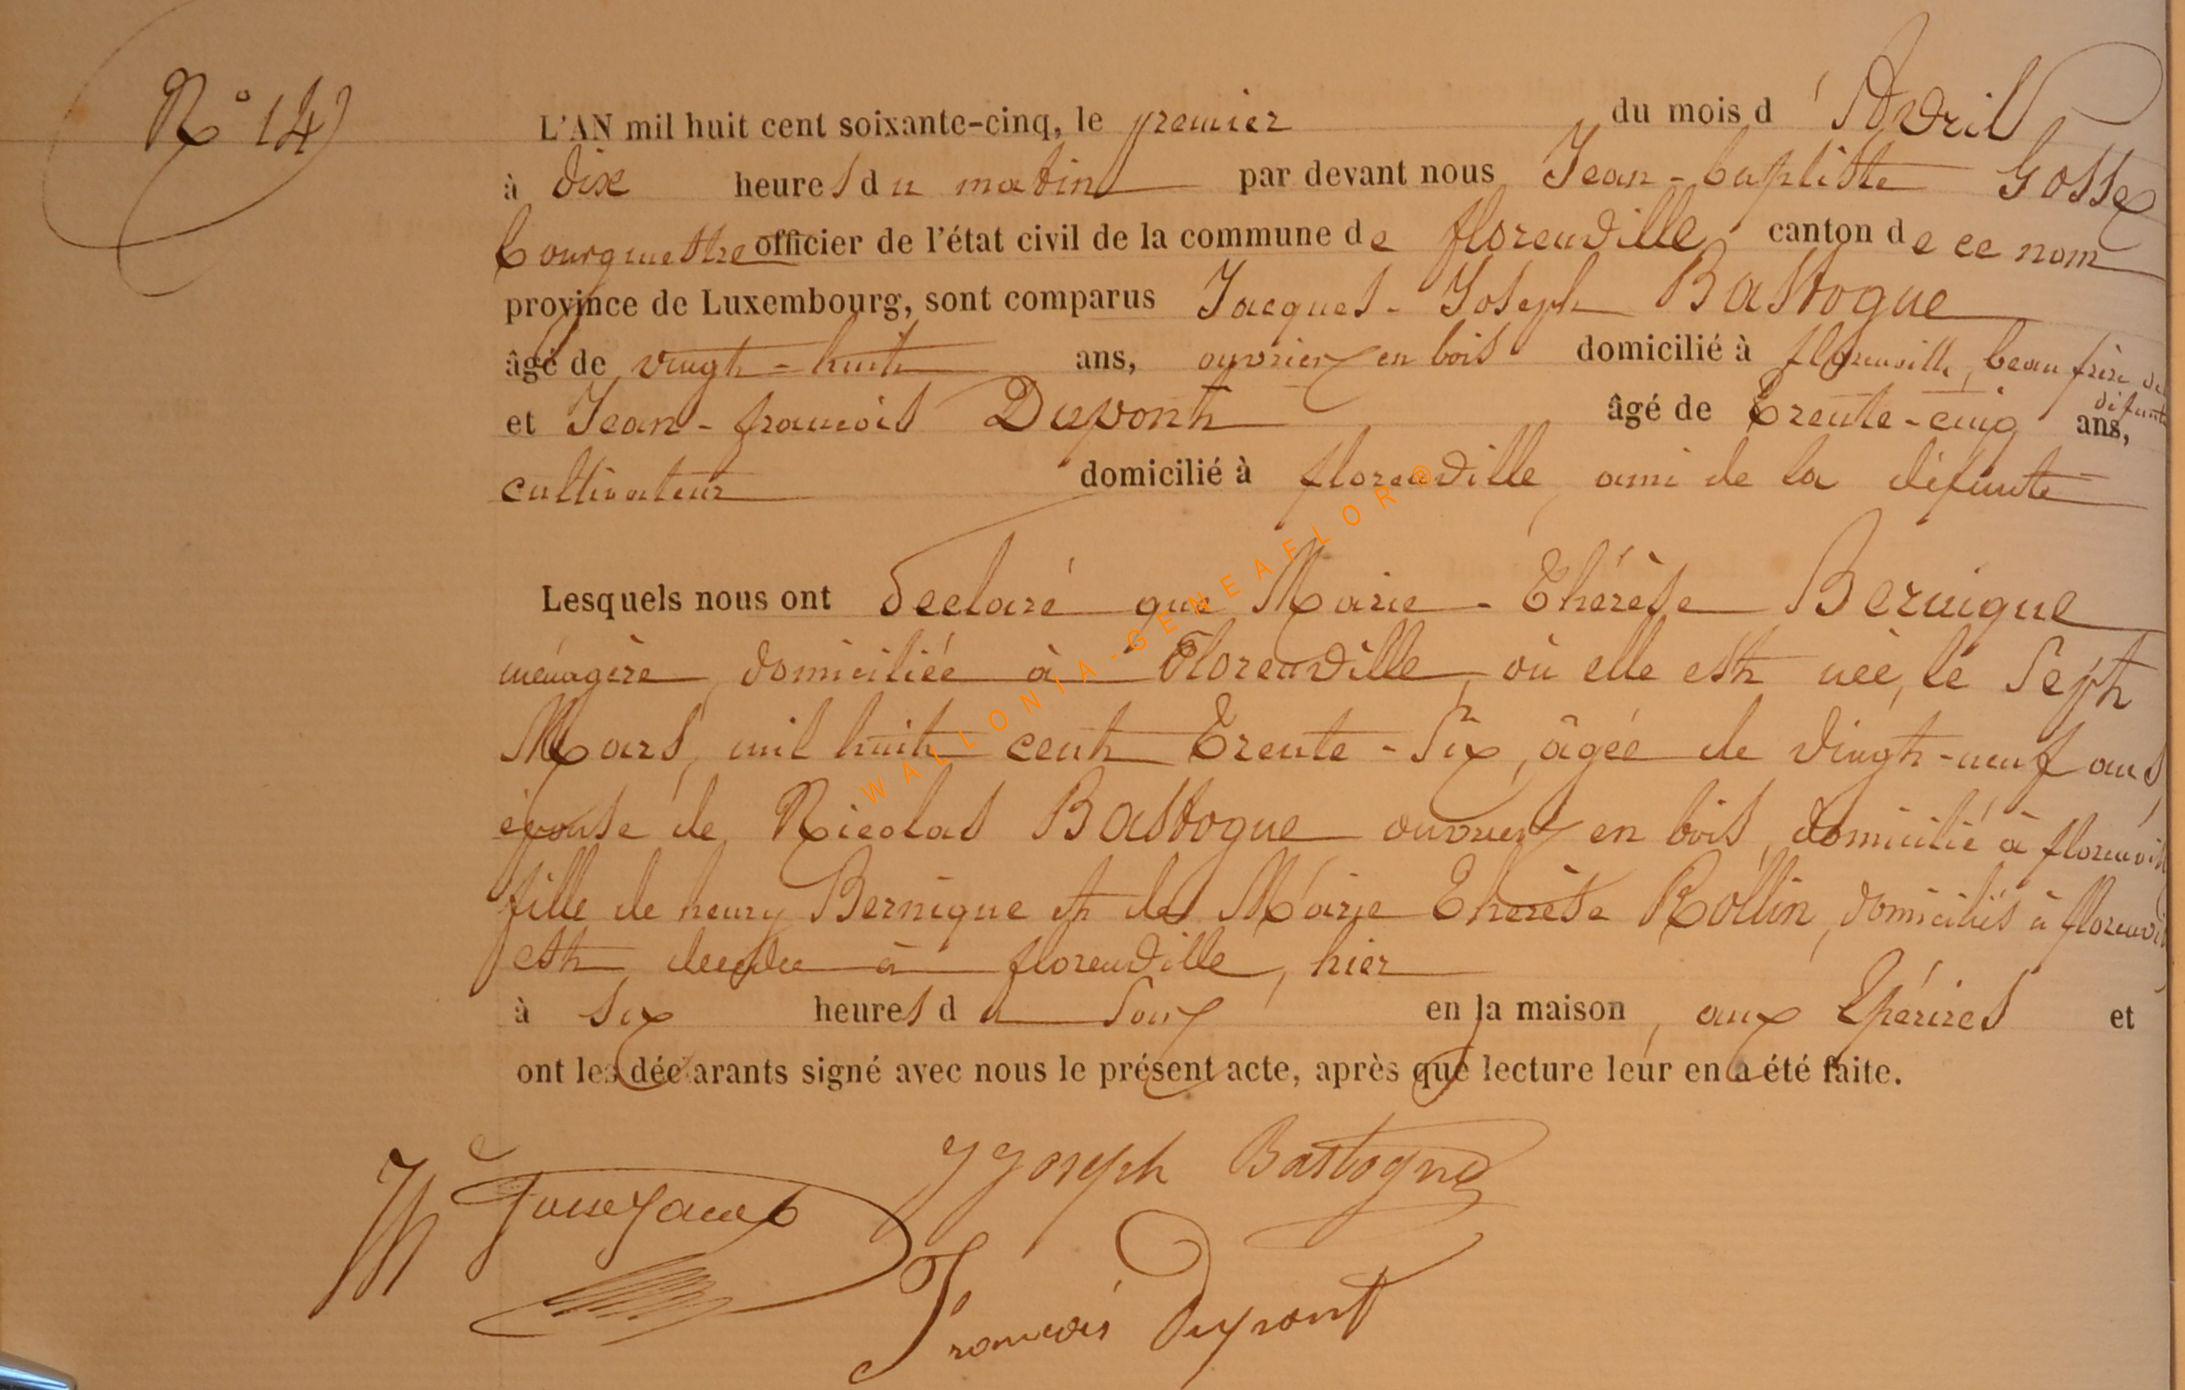 N° 14
L'AN mil huit cent soixante-cinq, le premier du mois d'Avril
à dix heures du matin par devant nous Jean-baptiste Gosse
bourgmestre officier de l'état civil de la commune de florenville canton de ce nom
province de Luxembourg, sont comparus Jacques-Joseph Bastogne
âgé de vingt-huit ans, ouvrier en bois domicilié à florenville, beau frère de
défunte
et Jean-françois Dupont âgé de trente-cinq ans,
cultivateur domicilié à florenville, ami de la défunte
Lesquels nous ont déclaré que Marie-Thérèse Bernique
ménagère, domiciliée à Florenville, où elle est née, le sept
Mars, mil huit cent trente-six, âgée de vingt-neuf ans,
épouse de Nicolas Bastogne ouvrier en bois, domicilié à florenville
fille de henry Bernique et de Marie Thérèse Rollin, domiciliés à florenville
est décédée à florenville, hier
à six heures du soir en la maison, aux Epérires et
ont les déclarants signé avec nous le présent acte, après que lecture leur en a été faite.
JJoseph Bastogne
François Dupont
WALLONIA-GENEAFLOR®